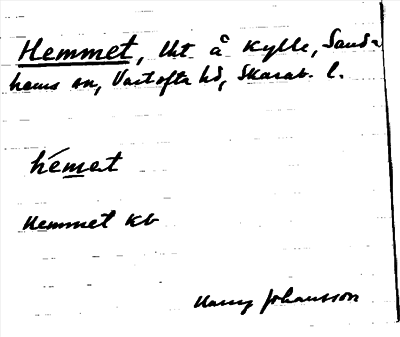 Hemmet, Uht å Kylle, Sand=
hems sn, Vartofta hd, Skarab. l.
hémat
Hemmet Kb
Harry Johansson